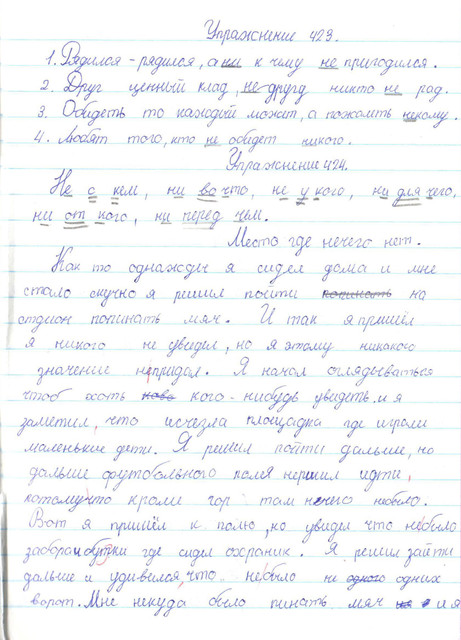 Упражнение 423.
1. Рядился - рядился, а ни к чему не пригодился.
2. Друг ценный клад, не другу никто не рад.
3. Обидеть то каждый может, а пожалить никому.
4. Любят того, кто не обидет никого.
Упражнение 424.
Не с кем, ни во что, не у кого, ни для чего,
ни от кого, ни перед чем.
Место где нечего нет.
Как то однажды я сидел дома и мне
стало скучно я решил пойти попинать на
стдион попинать мяч. И так я пришёл
я никого не увидел, но я этому никакого
значение непридал. Я начал оглядываться
чтоб хоть кого-нибудь увидеть и я
заметил, что исчезла площадка где играли
маленькие дети. Я решил пойти дальше, но
дальше футобольного поля нершил идти,
потомучто кроме гор там нечего небыло.
Вот я пришёл к полю, но увидел что небыло
забора и бутки где сидел охраник. Я решил зайти
дальше и удивился, что небыло не одного одних
ворот. Мне некуда было пинать мяч и я